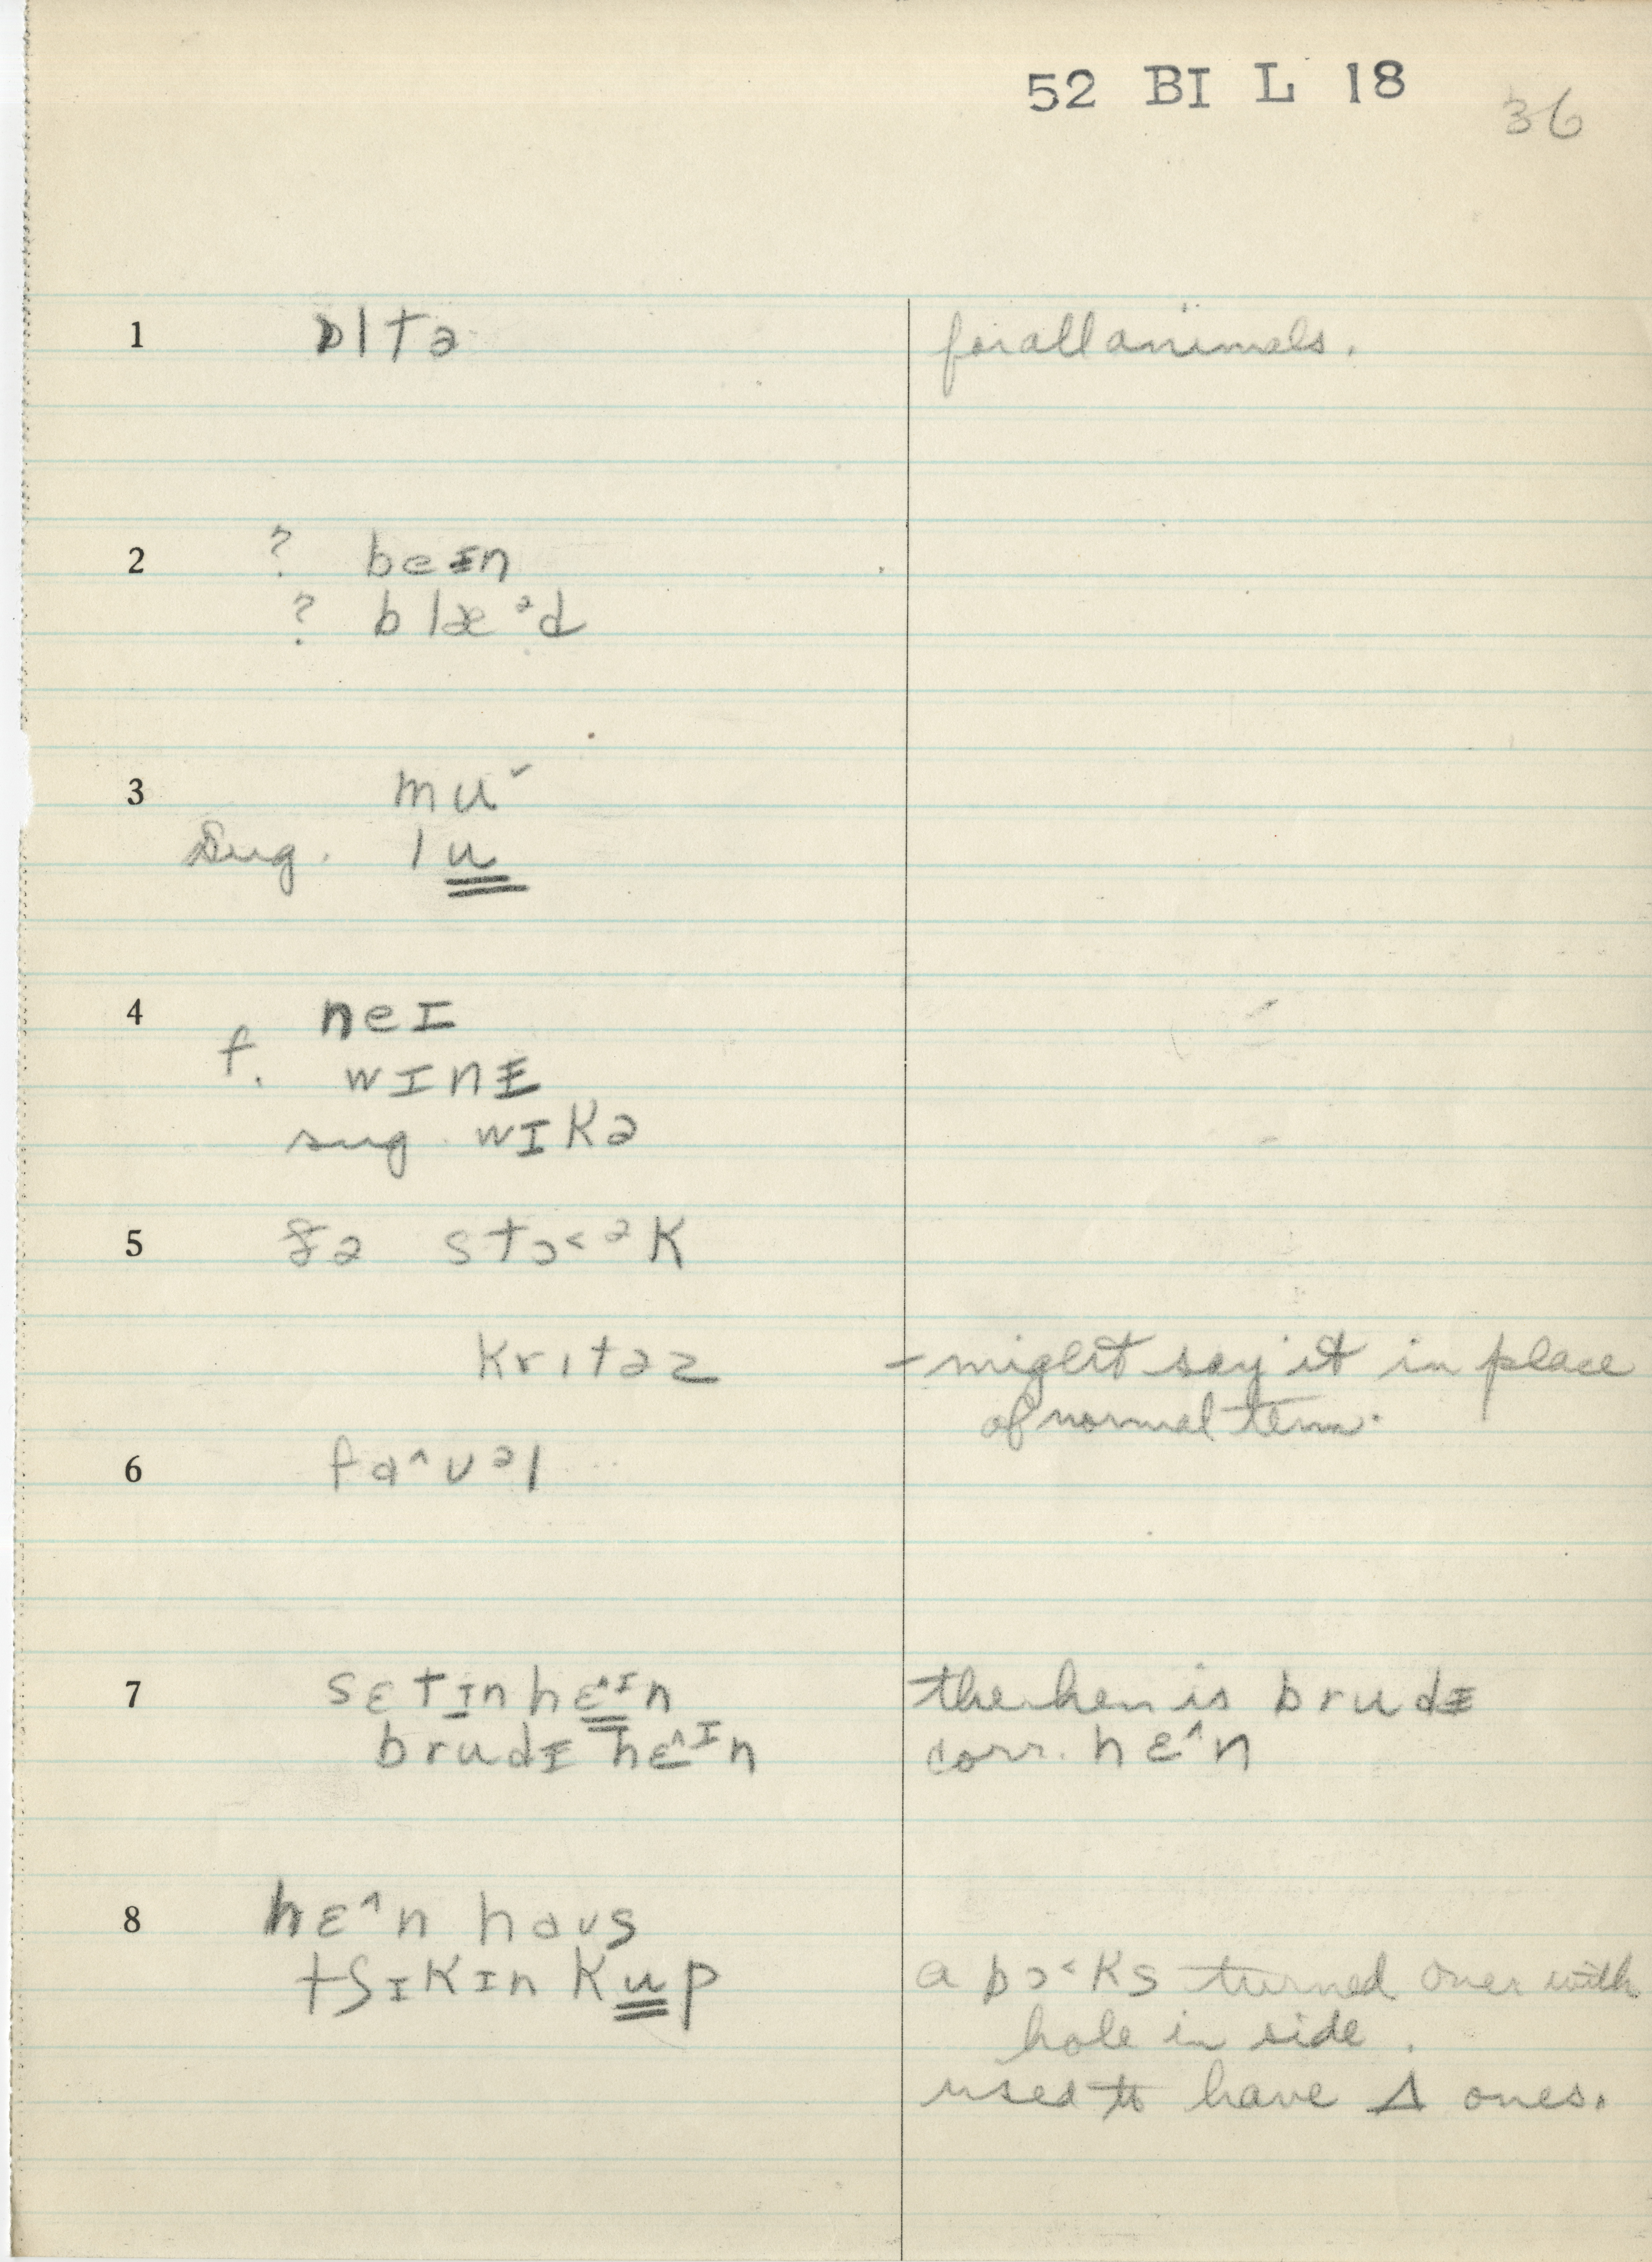 52 BI L 18
36
1 ɒltə for all animals.
2 ? beɪn
? blæᵊd
3 muˇ
Sug. lu̳
4 neɪ
f. wɪnɪ
sug. wɪkə
5 ðə stɔ˂ᵊk
kritəz – might say it in place
of normal term.
6 fa^ʊᵊl
7 sɛtɪ̲nhɛ̳^ᶦn the hen is brudɪ
brudɪ hɛ^ᶦn corr. hɛ^n
8 hɛ^n haʊs
tʃɪkɪn ku̳p a bɔ˂ks turned over with
hole in side.
used to have Δ ones.